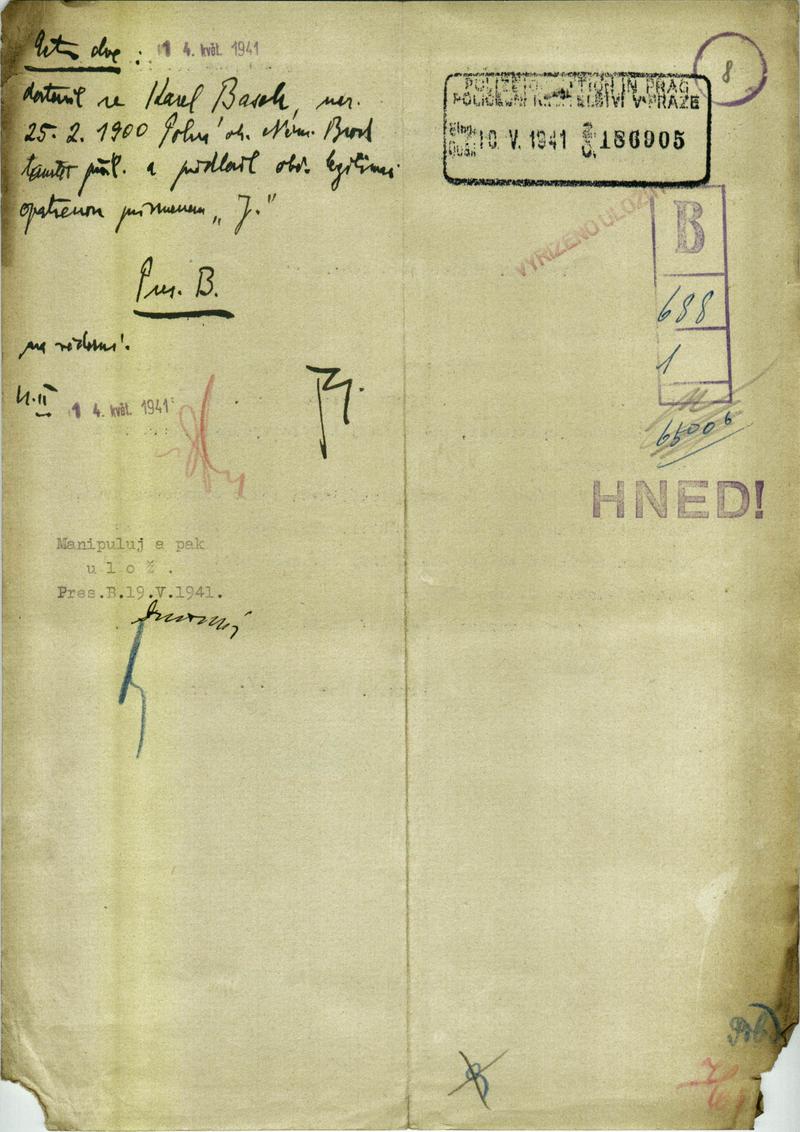 dne : 14. květ. 1941
dostavil se Karel Basch, nar.
25. 2. 1900 Polná ok. Něm. Brod
tamtéž přísl. a předložil obč. legitimaci
opatřenou písmenem „J."
Pres. B.
na vědomí.
14. květ. 1941
Manipuluj a pak
ulož.
Pres.B.19.V.1941.
8
POLIZEIDIREKTION IN PRAG
POLICEJNÍ ŘEDITELSTVÍ V PRAZE
10 V. 1941 186905
VYŘÍZENO ULOŽIT
B
688
1
HNED!